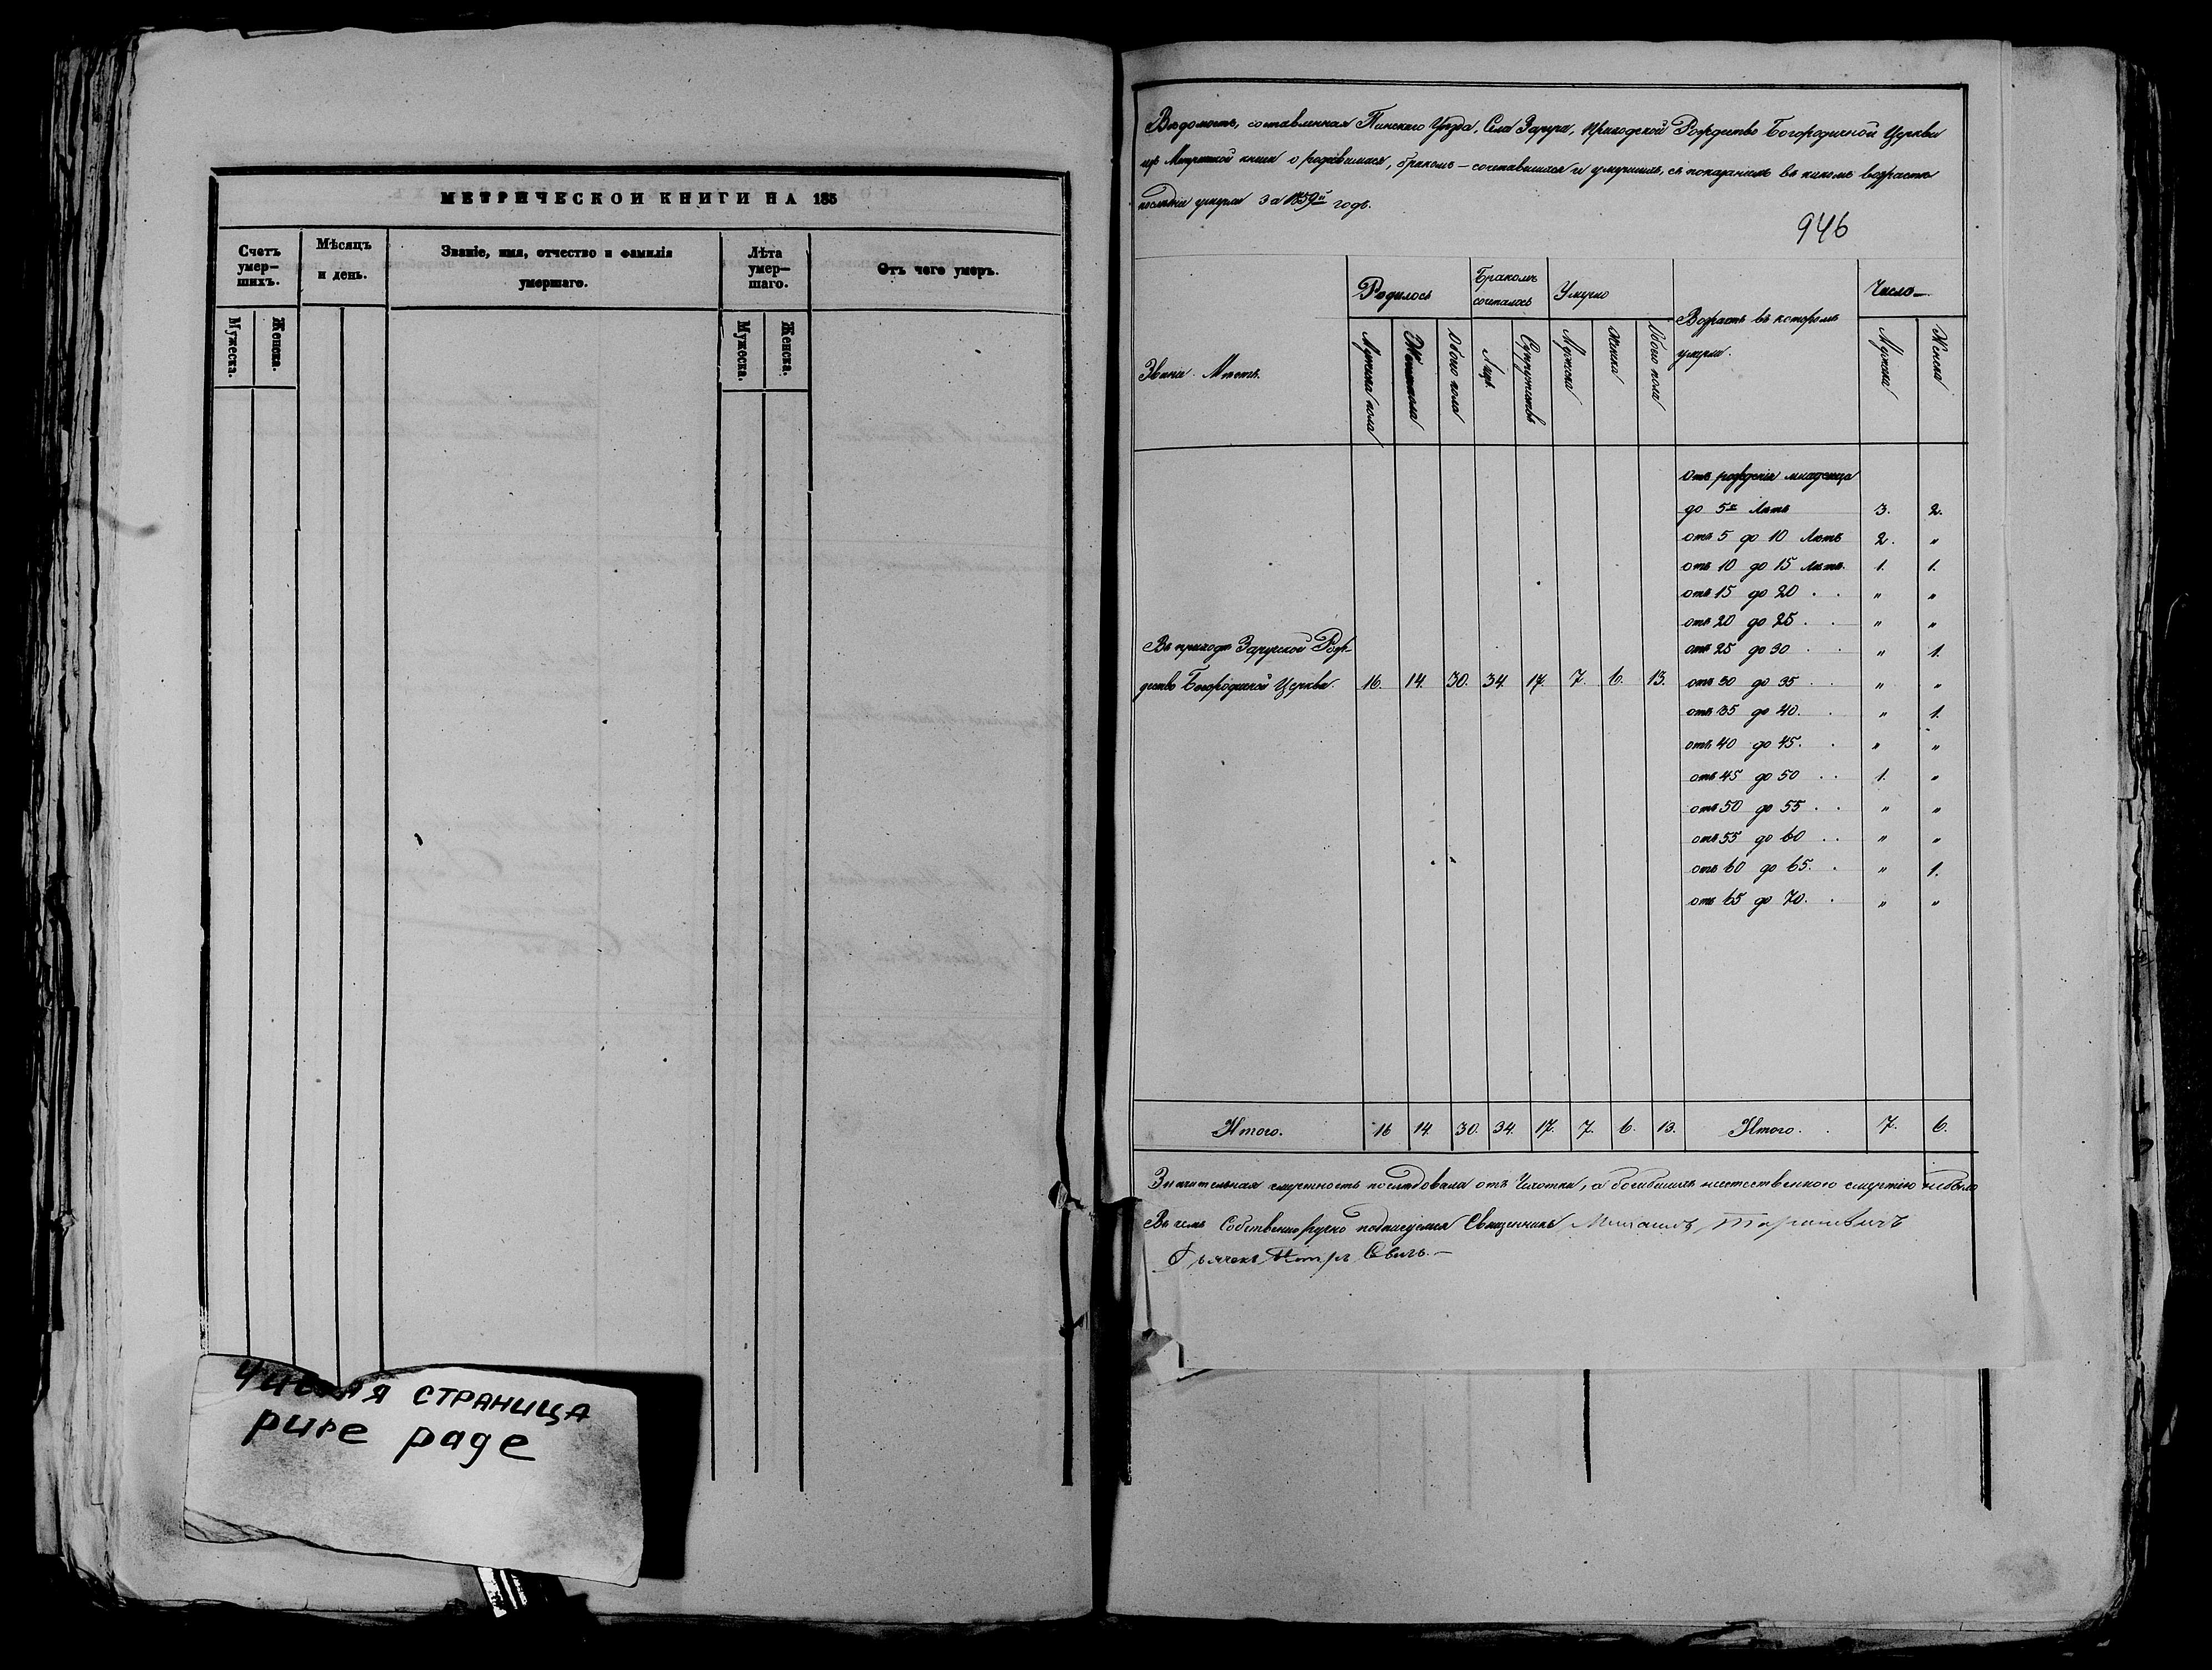 МЕТРИЧЕСКОЙ КНИГИ НА 185
Счетъ умер— шихъ.
Мѣсяцъ и день.
Званіе, имя, отчество и фамилія умершаго.
Лѣта умер— шаго.
Отъ чего умеръ.
Мужеска. Женска.
Мужеска. Женска.
Чистая страница
pure page
Вѣдомость, составленная Пинскаго Уѣзда, Села Заруга, Приходской Рождество Богородичной Церкви
изъ Метрической книги о родившихся, бракомъ—сочетавшихся и умершихъ, съ показаніемъ въ какомъ возрастѣ
послѣдни умерли за 1859й годъ.
946
Званіе Мѣстъ.
Родилось
Бракомъ сочеталось
Умерло
Возрастъ въ которомъ умерли.
Число—
Мужеска пола
Женска пола
Обоего пола
Лицъ
Супружествъ
Мужеска
Женска
Обоего пола
Мужеска
Женска
Отъ рожденія младенца
до 5ти Лѣтъ 3. 2.
отъ 5 до 10 Лѣтъ 2. "
отъ 10 до 15 Лѣтъ. 1. 1.
отъ 15 до 20 . . " "
отъ 20 до 25 . . " "
отъ 25 до 30 . . " 1.
Въ приходѣ Заружской Рож-
дество Богородичной Церкви. 16. 14. 30. 34. 17. 7. 6. 13. отъ 30 до 35 . . " "
отъ 35 до 40. . " 1.
отъ 40 до 45. . " "
отъ 45 до 50 . . 1. "
отъ 50 до 55 . . " "
отъ 55 до 60 . . " "
отъ 60 до 65. . " 1.
отъ 65 до 70. . " "
Итого. 16 14 30. 34. 17. 7. 6. 13. Итого. . 7. 6.
Значительная смертность послѣдовала отъ Чахотки, а погибшихъ неестественною смертію небыло
Въ чемъ Собственноручно подписуемся Священникъ Михаилъ Тарановичъ
Дьячекъ Петръ Свичъ.—